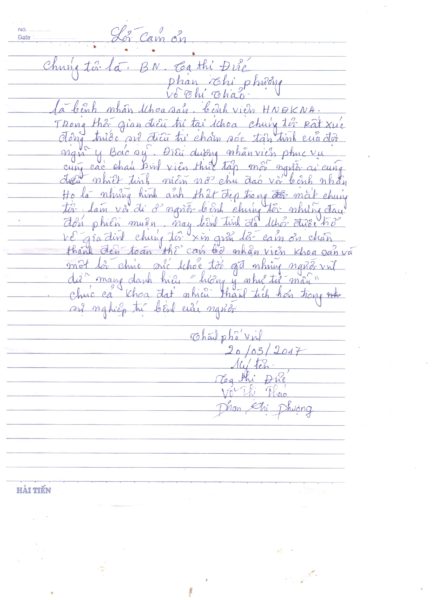 No.
Date
Lời Cảm ơn
Chúng tôi là. BN. Tạ Thị Đức
Phan Thị Phượng
Võ Thị Thảo
là bệnh nhân khoa sản. bệnh viện HNĐKNA.
Trong thời gian điều trị tại khoa chúng tôi Rất xúc
động trước sự điều trị chăm sóc tận tình của đội
ngũ y, Bác sỹ. Điều dưỡng nhân viên phục vụ
cùng các cháu sinh viên thực tập mỗi người ai cũng
đều nhiệt tình niềm nở chu đáo với bệnh nhân
Họ là những hình ảnh thật đẹp trong mắt chúng
tôi làm vơi đi ở người bệnh chúng tôi những đau
đớn phiền muộn. nay bệnh tình đã khỏi được về
về gia đình chúng tôi xin gửi lời cảm ơn chân
thành đến toàn thể cán bộ nhân viên khoa sản và
một lời chúc sức khỏe tới những người
mang danh hiệu "lương y như từ mẫu"
chúc cả khoa đạt nhiều thành tích hơn trong
sự nghiệp trị bệnh cứu người
Thành phố Vinh
20/05/2017
Ký tên
Tạ Thị Đức
Võ Thị Thảo
Phan Thị Phượng
HẢI TIẾN